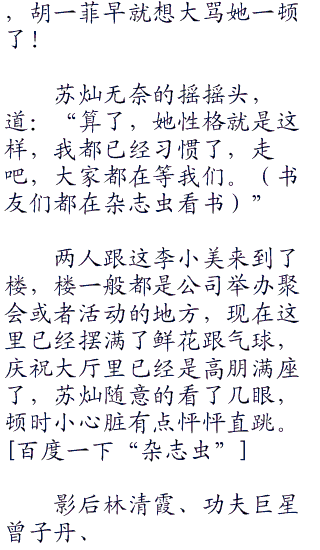 ，胡一菲早就想大骂她一顿
了！
苏灿无奈的摇摇头，
道：“算了，她性格就是这
样，我都已经习惯了，走
吧，大家都在等我们。（书
友们都在杂志虫看书）”
两人跟这李小美来到了
楼，楼一般都是公司举办聚
会或者活动的地方，现在这
里已经摆满了鲜花跟气球，
庆祝大厅里已经是高朋满座
了，苏灿随意的看了几眼，
顿时小心脏有点怦怦直跳。
[百度一下“杂志虫”]
影后林清霞、功夫巨星
曾子丹、